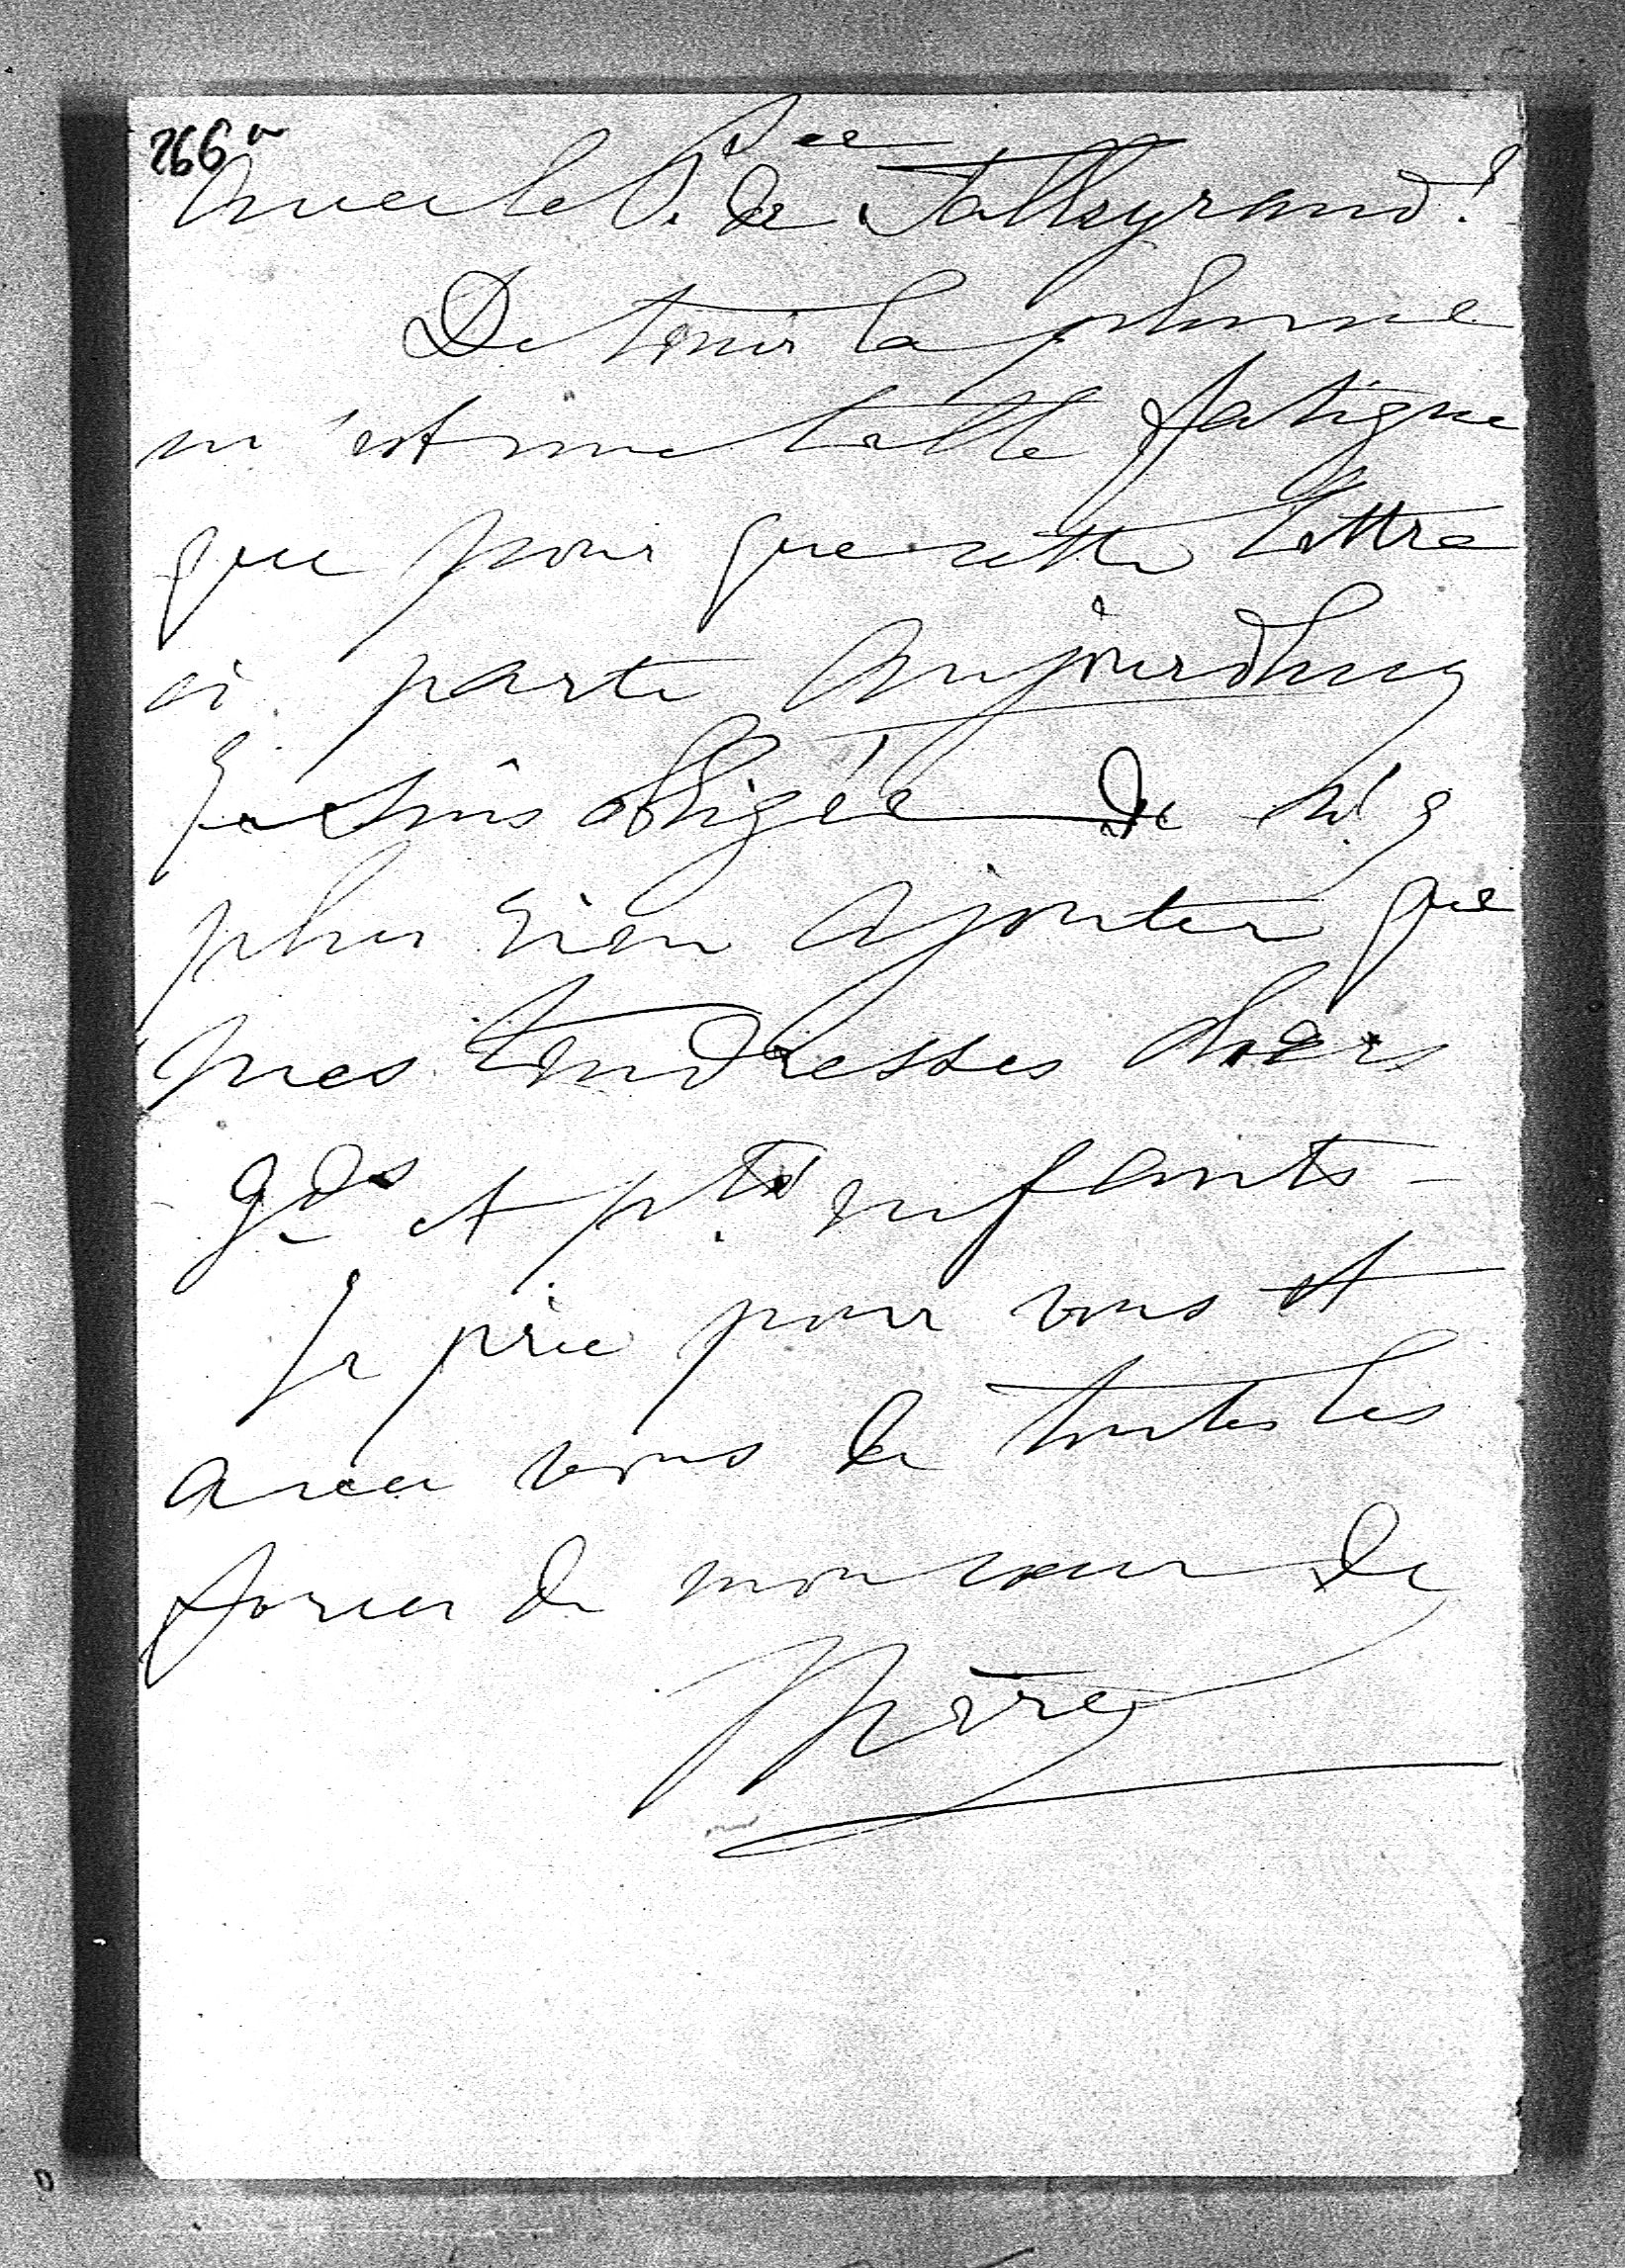 266 v
avec le P.ce de Talleyrand !
De tenir la plume
m'est une telle fatigue
que pour que cette lettre
ci parte aujourdhuy
je suis obligée de n'y
plus rien ajouter que
mes tendresses chers
gds et pts enfants –
Je prie pour vous et
avec vous de toutes les
forces de mon cœur de
Mère